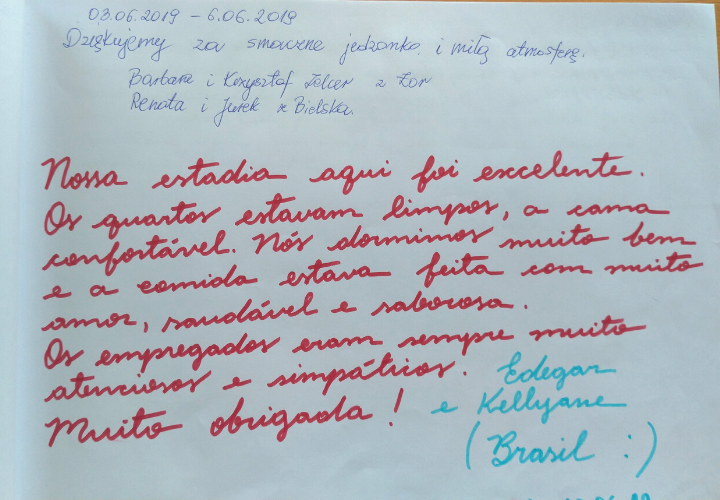 03.06.2019 – 6.06.2019
Dziękujemy za smaczne jedzonko i miłą atmosferę.
Barbara i Krzysztof z Żor
Renata i Jurek z Bielska.
Nossa estadia aqui foi excelente.
Os quartos estavam limpos, a cama
confortável. Nós dormimos muito bem
e a comida estava feita com muito
amor, saudável e saborosa.
Os empregados eram sempre muito
atenciosos e simpáticos. Edegar
Muito obrigada! e Kellyane
(Brasil :)